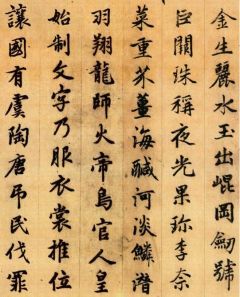 金生麗水玉出崐岡劒號
巨闕珠稱夜光果珍李奈
菜重芥薑海鹹河淡鱗潛
羽翔龍師火帝鳥官人皇
始制文字乃服衣裳推位
讓國有虞陶唐吊民伐罪